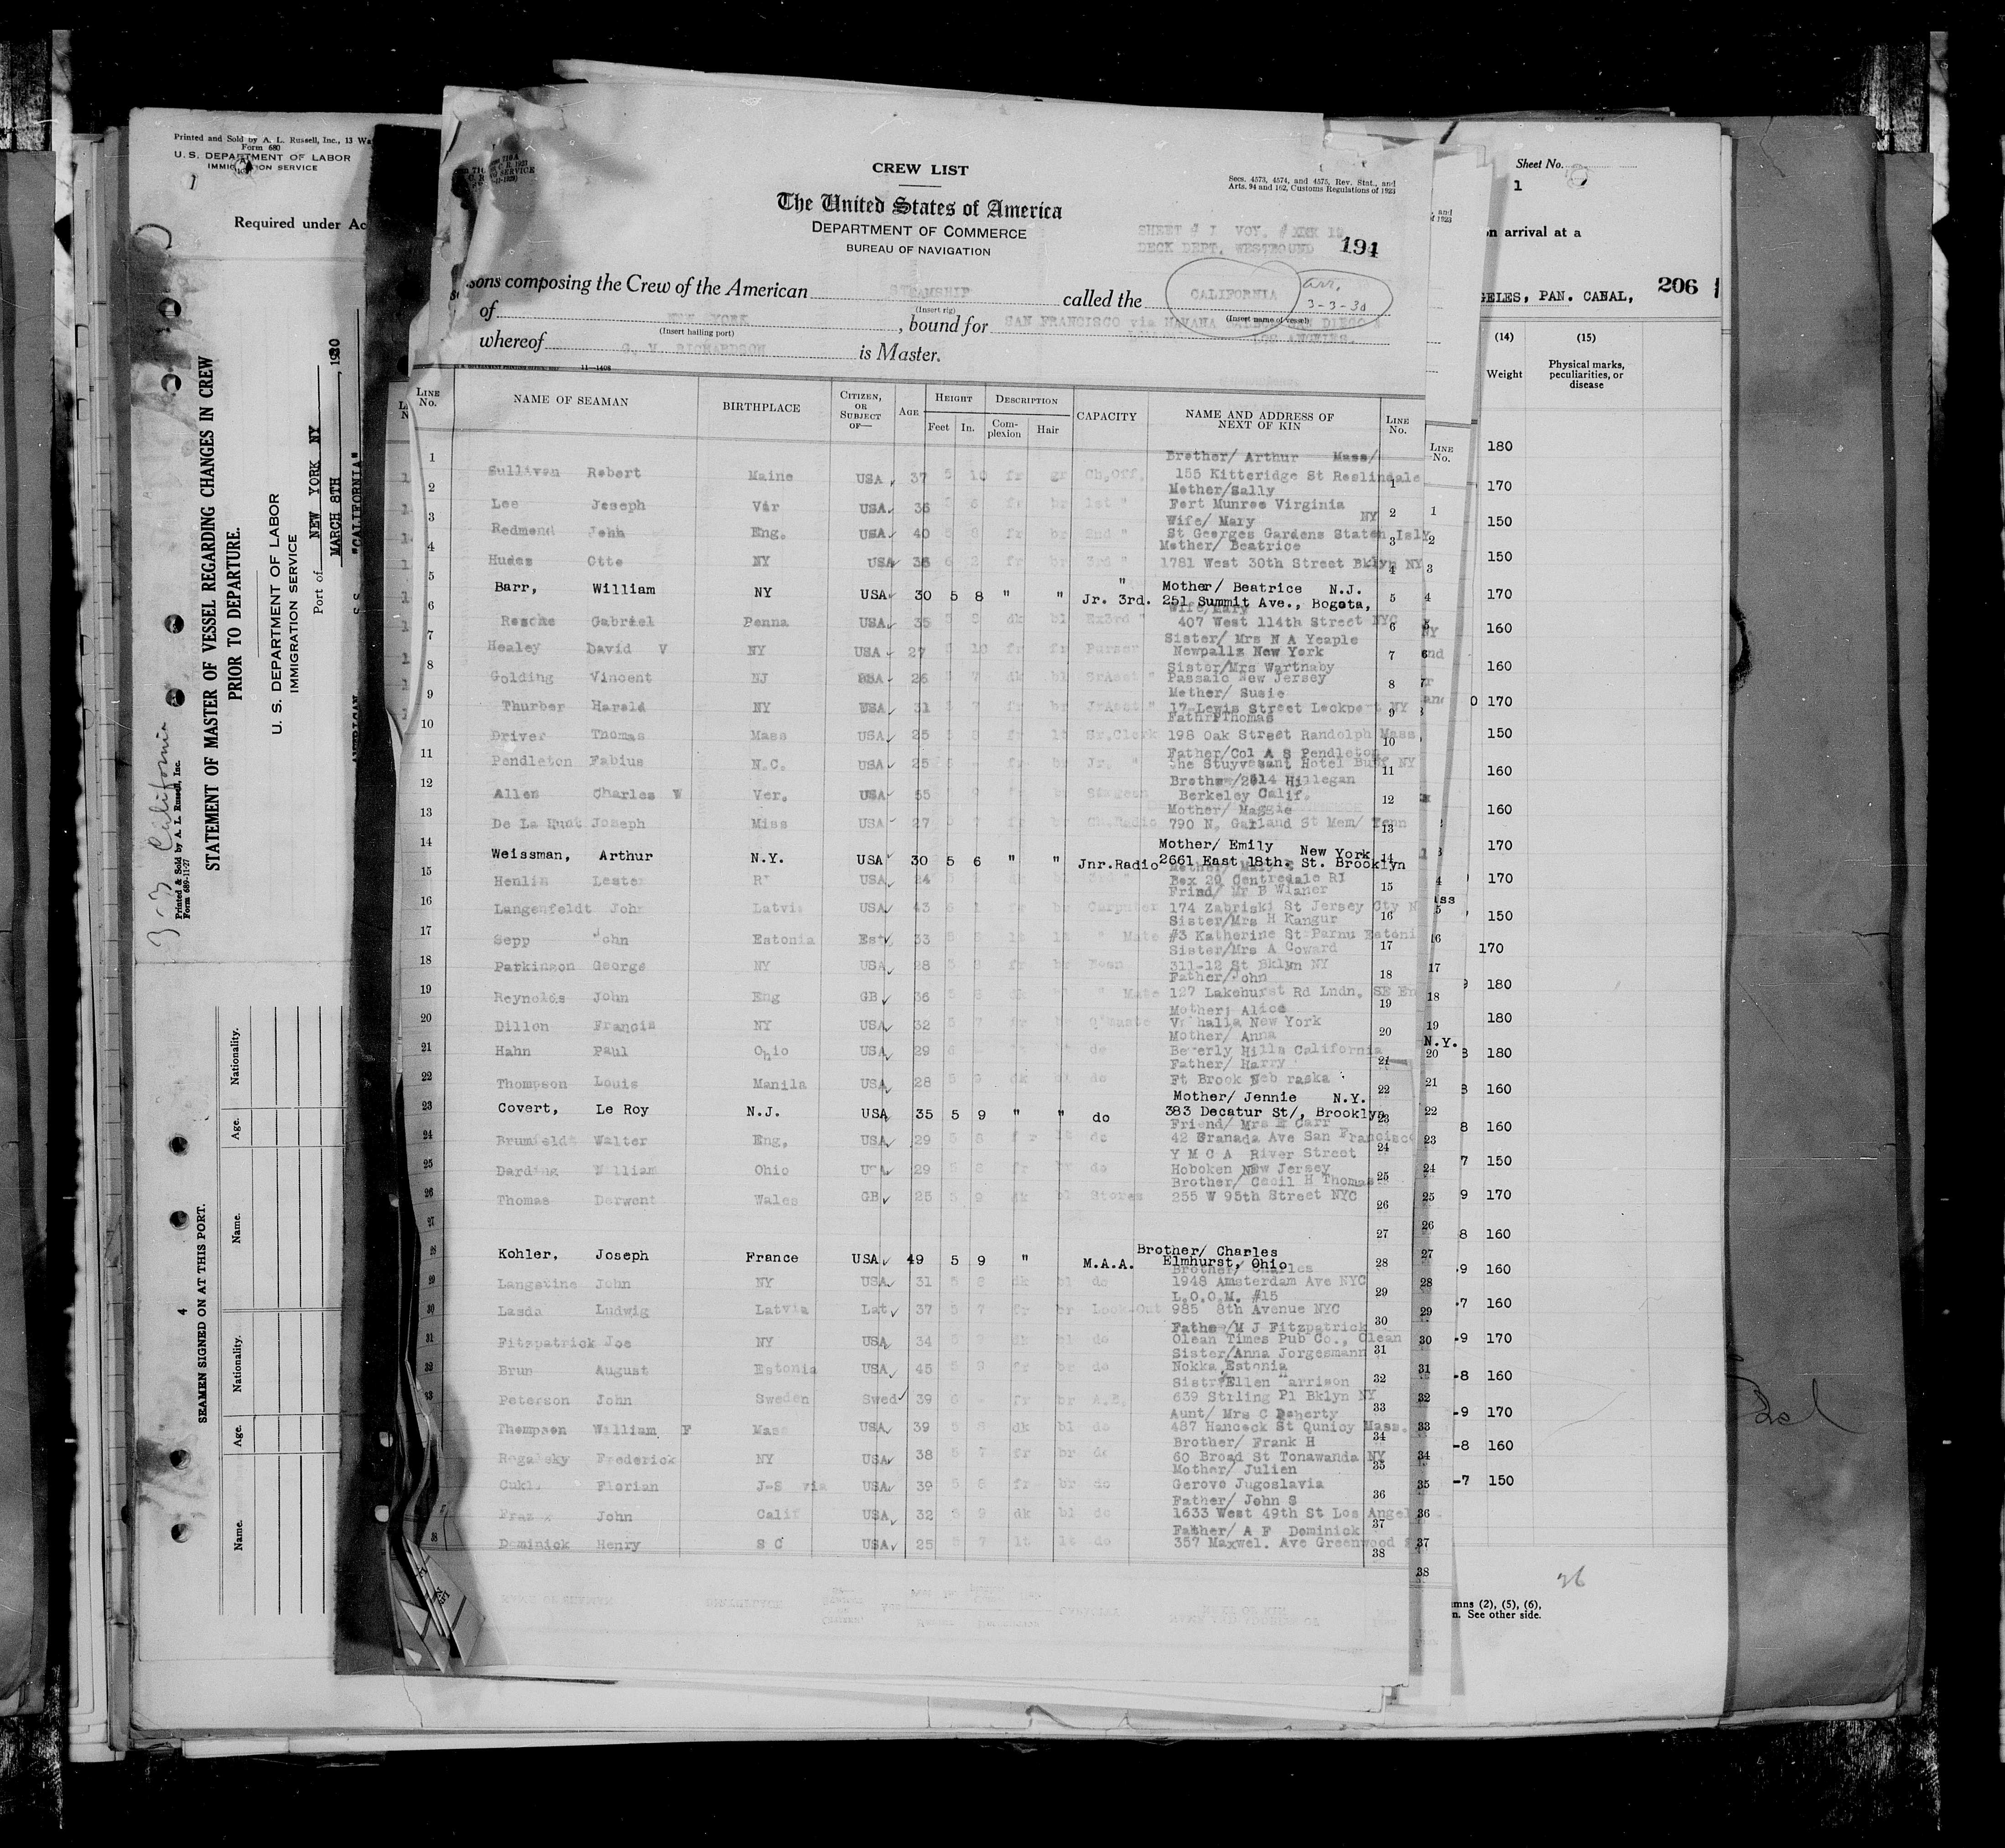 Printed and Sold by A. L. Russell, Inc., 13 Wa
Form 680
U. S. DEPARTMENT OF LABOR
IMMIGRATION SERVICE
1
Required under Ac
3-3 California
Printed & Sold by A. L. Russell, Inc.
Form 689-11-27
STATEMENT OF MASTER OF VESSEL REGARDING CHANGES IN CREW
PRIOR TO DEPARTURE.
U. S. DEPARTMENT OF LABOR
IMMIGRATION SERVICE
Port of NEW YORK NY
MARCH 8TH , 1930
S.S. "CALIFORNIA"
4
SEAMEN SIGNED ON AT THIS PORT.
Name. Age. Nationality. Name. Age. Nationality.
CREW LIST
Secs. 4573, 4574, and 4575, Rev. Stat., and
Arts. 94 and 162, Customs Regulations of 1923
The United States of America
DEPARTMENT OF COMMERCE
BUREAU OF NAVIGATION
SHEET # 1 VOY. #
DECK DEPT. WESTBOUND
194
sons composing the Crew of the American STEAMSHIP called the CALIFORNIA
arr. 3-3-30
(Insert rig) (Insert name of vessel)
of NEW YORK , bound for SAN FRANCISCO via HAVANA SAN DIEGO &
(Insert hailing port)
LOS ANGELES.
whereof G. V. RICKARDSON is Master.
11—1408
LINE No. NAME OF SEAMAN BIRTHPLACE CITIZEN, OR SUBJECT OF— AGE HEIGHT Feet In. DESCRIPTION Complexion Hair CAPACITY NAME AND ADDRESS OF NEXT OF KIN LINE No.
1 Brother/ Arthur Mass/
Sullivan Robert Maine USA 37 5 10 fr gr Ch.Off. 155 Kitteridge St Roslindale 1
2 Mother/Sally
Lee Joseph Vir USA 36 5 6 fr br 1st " Fort Munroe Virginia 2
3 Wife/ Mary NY
Redmond John Eng. USA 40 5 8 fr br 2nd " St Georges Gardens Staten Isly 3
4 Mother/ Beatrice
Hudes Otto NY USA 36 6 2 fr br 3rd " 1781 West 30th Street Bklyn NY 4
5 Mother/ Beatrice N.J.
Barr, William NY USA 30 5 8 " " Jr. 3rd. " 251 Summit Ave., Bogota, 5
6 Wife/Mary
Resche Gabriel Penna USA 35 5 8 dk bl Ex3rd " 407 West 114th Street NYC 6
7 Sister/ Mrs N A Yeaple
Healey David V NY USA 27 5 10 fr fr Purser Newpallz New York 7
8 Sister/Mrs Wartnaby
Golding Vincent NJ USA 26 5 7 dk bl SrAsst " Passaic New Jersey 8
9 Mother/ Susie
Thurber Harold NY USA 31 5 7 fr br JrAsst " 17 Lewis Street Lockport NY 9
10 FathrPThomas
Driver Thomas Mass USA 25 5 8 fr lt Sr.Clerk 198 Oak Street Randolph Mass 10
11 Father/Col A S Pendleton
Pendleton Fabius N.C. USA 25 fr br Jr. " The Stuyvesant Hotel Buff NY 11
12 Brother/2614 Hillegan
Allen Charles W Ver. USA 55 fr Surgeon Berkeley Calif. 12
13 Mother/ Maggie
De La Hunt Joseph Miss USA 27 5 7 fr br Ch.Radio 790 N. Garland St Mem/ Tenn 13
14 Mother/ Emily New York
Weissman, Arthur N.Y. USA 30 5 6 " " Jnr.Radio 2661 East 18th. St. Brooklyn 14
15 Mother/ Mary
Henlin Lester RI USA 24 Box 29 Centredale RI 15
16 Frind/ Mr B Wianer
Langenfeldt John Latvia USA 43 6 1 fr br Carpnter 174 Zabriski St Jersey Cty N 16
17 Sister/Mrs H Kangur
Sepp John Estonia Est 33 5 8 lt lt " Mate #3 Katherine St Parnu Estoni 17
18 Sister/Mrs A Coward
Parkinson George NY USA 28 5 8 fr br Bosn 311-12 St Bklyn NY 18
19 Father/John
Reynolds John Eng GB 36 5 8 dk bl " Mate 127 Lakehurst Rd Lndn. SE En 19
20 Mother; Alice
Dillon Francis NY USA 32 5 7 fr br Q'maste Valhalla New York 20
21 Mother/ Anna
Hahn Paul Ohio USA 29 6 do Beverly Hills California 21
22 Father/ Harry
Thompson Louis Manila USA 28 5 9 dk bl do Ft Brook Neb raska 22
23 Mother/ Jennie N.Y.
Covert, Le Roy N.J. USA 35 5 9 " " do 383 Decatur St/, Brooklyn 23
24 Friend/ Mrs E Carr
Brumfeldt Walter Eng. USA 29 5 8 fr lt do 42 Granada Ave San Francisco 24
25 Y M C A River Street
Darding William Ohio USA 29 5 8 fr br do Hoboken NEW Jersey 25
26 Brother/ Cecil H Thomas
Thomas Derwent Wales GB 25 5 9 dk bl Stores 255 W 95th Street NYC 26
27 27
28 Brother/ Charles
Kohler, Joseph France USA 49 5 9 " M.A.A. Elmhurst, Ohio 28
29 Brother/ Charles
Langstine John NY USA 31 5 8 dk bl do 1948 Amsterdam Ave NYC 29
30 L.O.O.M. #15
Lasda Ludwig Latvia Lat 37 5 7 fr br Look-Out 985 8th Avenue NYC 30
31 Father/M J Fitzpatrick
Fitzpatrick Joe NY USA 34 5 8 dk bl do Olean Times Pub Co., Olean 31
32 Sister/Anna Jorgesmann
Brun August Estonia USA 45 5 8 fr br do Nokka Estonia 32
33 Sistr/Ellen Harrison
Peterson John Sweden Swed 39 6 fr br A.B. 639 Strling Pl Bklyn NY 33
Aunt/ Mrs C Doherty
Thompson William F Mass USA 39 5 8 dk bl do 487 Hancock St Qunicy Mass. 34
Brother/ Frank H
Rogalsky Frederick NY USA 38 5 7 fr br do 60 Broad St Tonawanda NY 35
Mother/ Julien
Cukl Florian J-S via USA 39 5 8 fr br do Gerovo Jugoslavia 36
Father/ John S
John Calif USA 32 5 9 dk bl do 1633 West 49th St Los Angel 37
38 Father/ A F Dominick
Dominick Henry S C USA 25 5 7 lt lt do 357 Maxwel. Ave Greenwood 38
Sheet No.
1
n arrival at a
GELES, PAN. CANAL,
206
(14) (15)
Weight Physical marks, peculiarities, or disease
180
170
150
150
170
160
160
170
150
160
160
170
170
150
170
180
180
180
160
160
150
170
160
160
160
170
160
170
160
150
26
mns (2), (5), (6),
n. See other side.